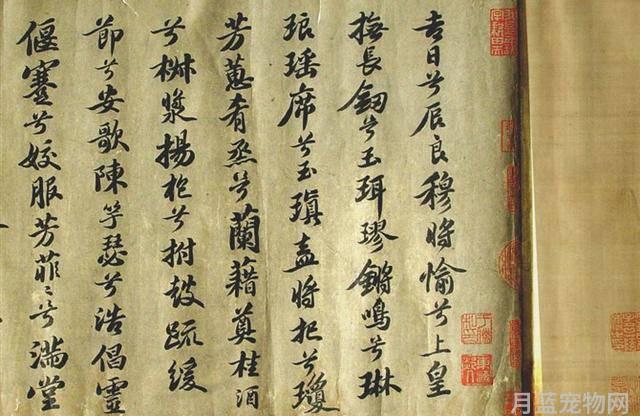 吉日兮辰良穆將愉兮上皇
撫長釼兮玉珥璆鏘鳴兮琳
琅瑶席兮玉瑱盍將把兮瓊
芳蕙肴烝兮蘭藉奠桂酒
兮椒漿揚枹兮拊鼓疏緩
節兮安歌陳竽瑟兮浩倡靈
偃蹇兮姣服芳菲〻兮滿堂
月蓝宠物网